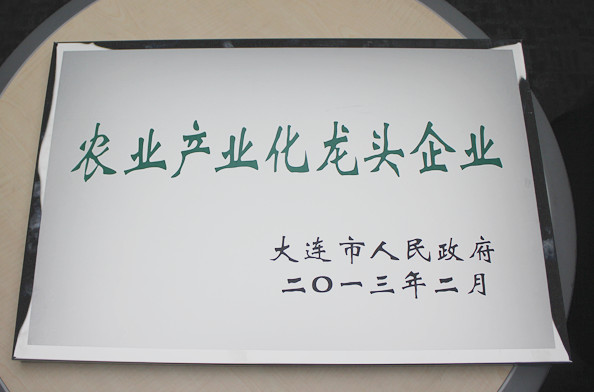 农业产业化龙头企业
大连市人民政府
二〇一三年二月